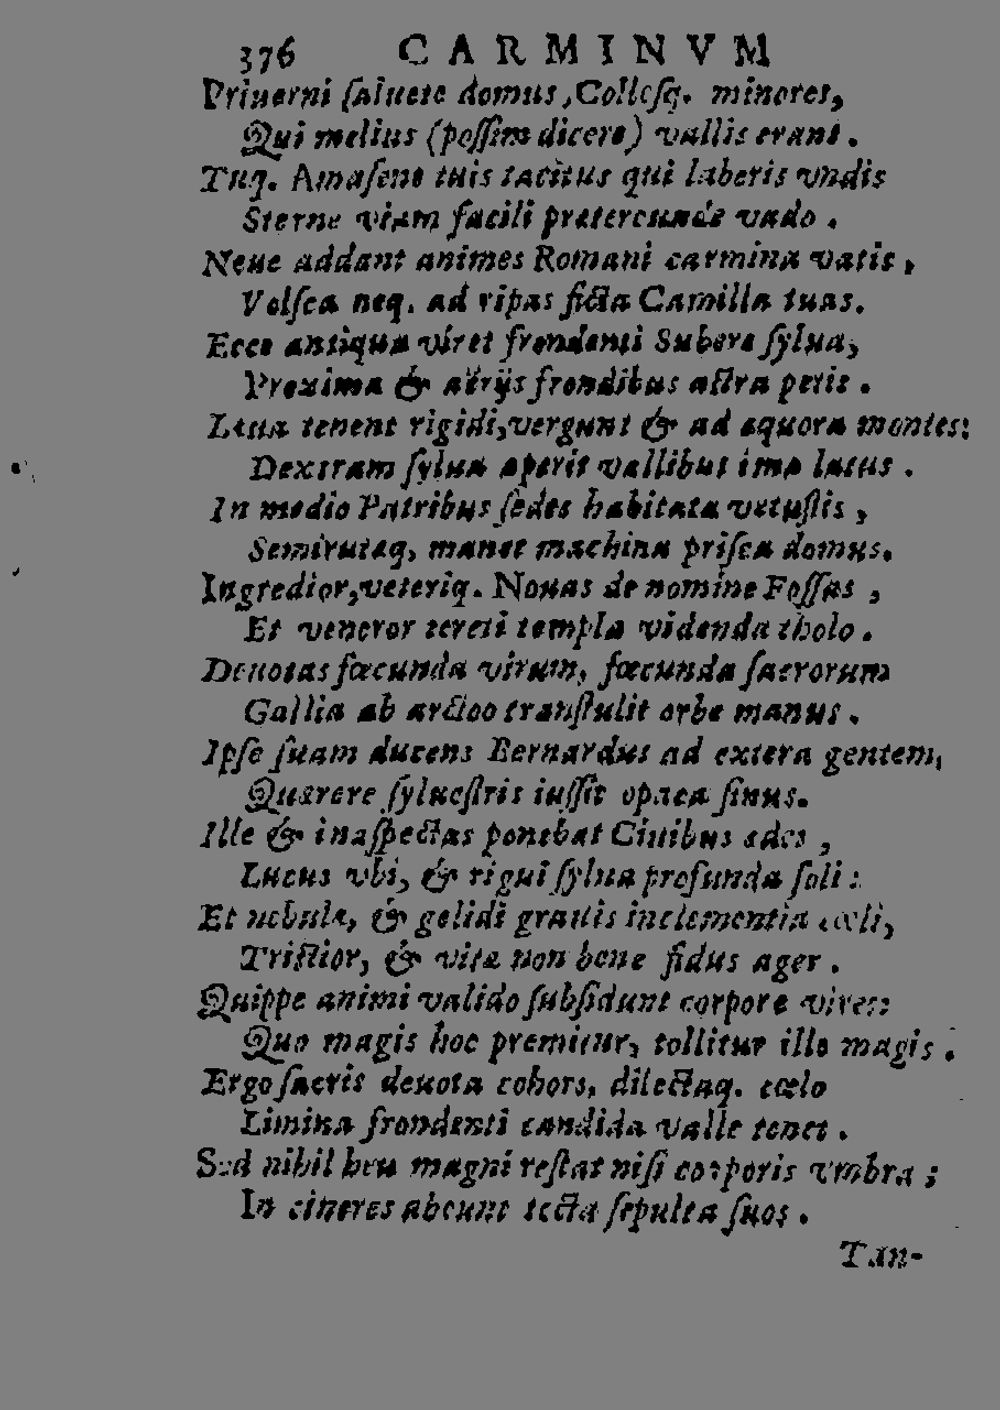 376 CARMINVM
Priuerni ſaluete domus, Colleſq. minores,
Qui melius (poſſim dicere) vallis erant.
Tuq. Amaſene tuis tacitus qui laberis vndis
Sterne viam facili prætereunde vado.
Neue addant animes Romani carmina vatis,
Volſca neq. ad ripas ficta Camilla tuas.
Ecce antiqua viret frondenti Subere ſylua,
Proxima & aërijs frondibus aſtra petit.
Læua tenent rigidi, vergunt & ad æquora montes:
Dextram ſylua aperit vallibus ima latus.
In medio Patribus ſedes habitata vetuſtis,
Semirutæq, manet machina priſca domus.
Ingredior, veteriq. Nouas de nomine Foſſas,
Et veneror tereti templa videnda tholo.
Deuotas fœcunda virum, fœcunda ſacrorum
Gallia ab arctoo tranſtulit orbe manus.
Ipſe ſuam ducens Bernardus ad extera gentem,
Quærere ſylueſtris iuſſit opaca ſinus.
Ille & inaſpectas ponebat Ciuibus ædes,
Lucus vbi, & rigui ſylua profunda ſoli:
Et nebulæ, & gelidi grauis inclementia cœli,
Triſtior, & vitæ non bene fidus ager.
Quippe animi valido ſubſidunt corpore vires:
Quo magis hoc premitur, tollitur ille magis.
Ergo ſacris deuota cohors, dilectaq. cœlo
Limina frondenti candida valle tenet.
Sed nihil heu magni reſtat niſi corporis vmbra;
In cineres abeunt tecta ſepulta ſuos.
Tan-